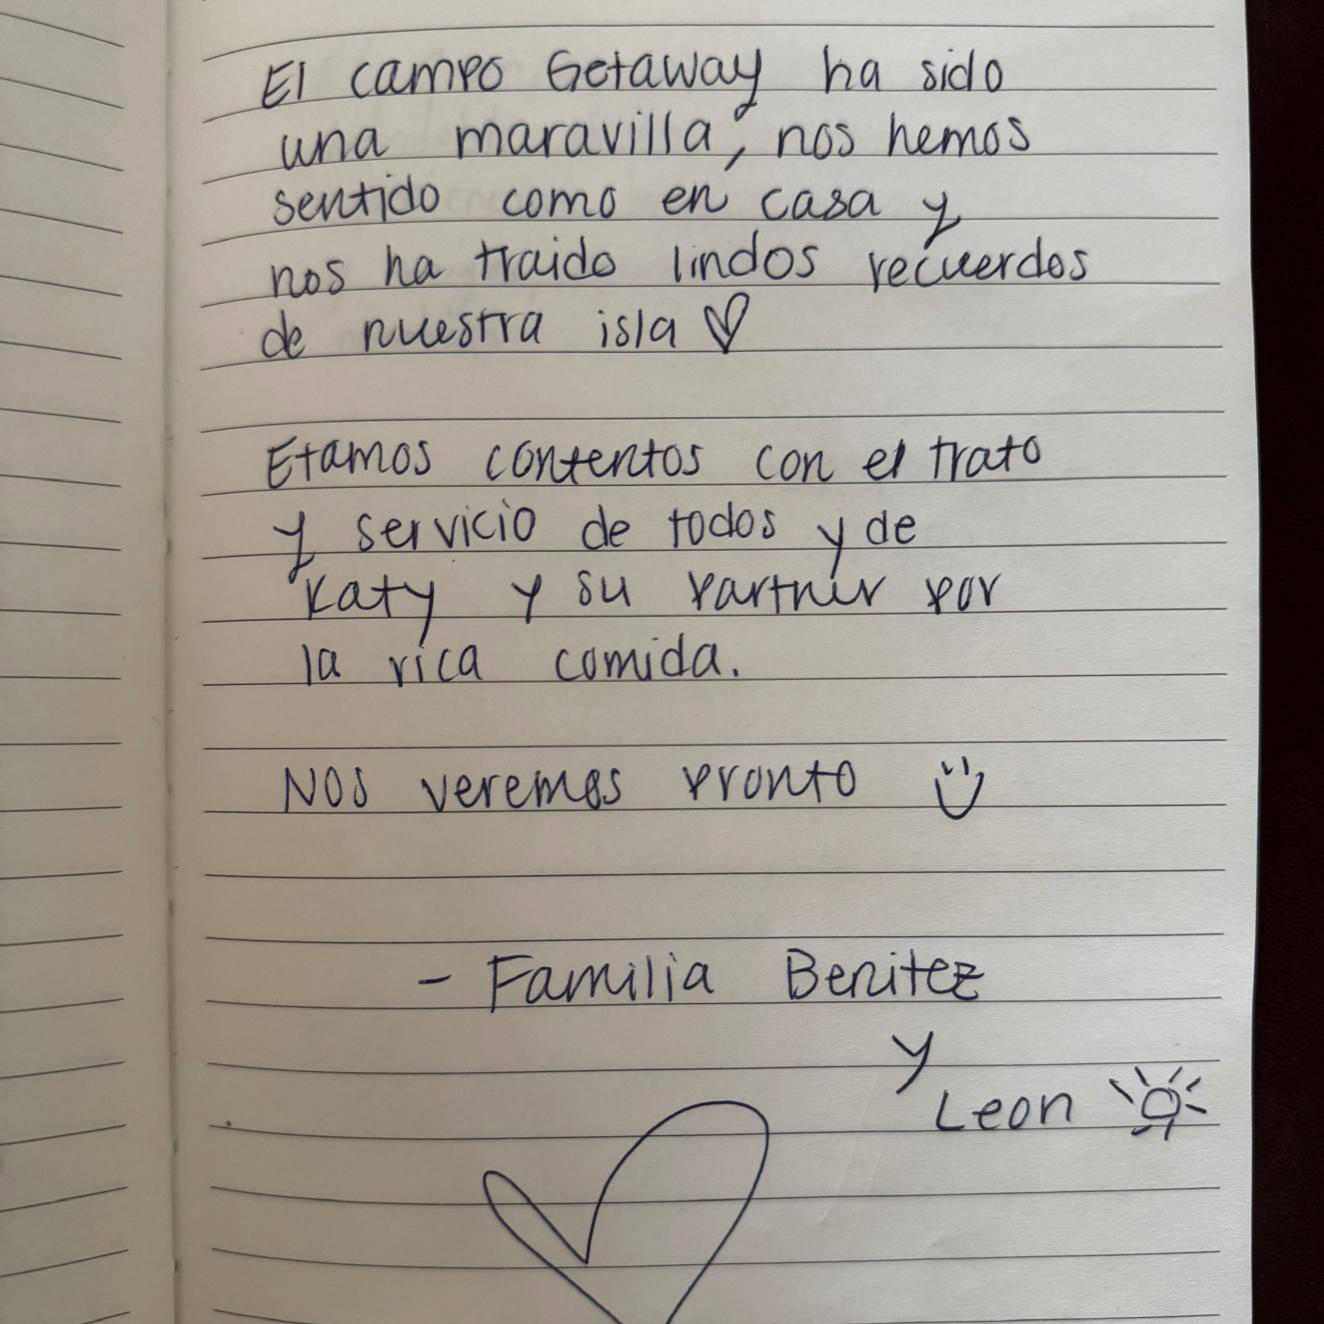 El campo Getaway ha sido
una maravilla, nos hemos
sentido como en casa y
nos ha traido lindos recuerdos
de nuestra isla ♡
Etamos contentos con el trato
y servicio de todos y de
Katy y su Partnir por
la rica comida.
Nos veremos pronto
- Familia Benitez
y
Leon